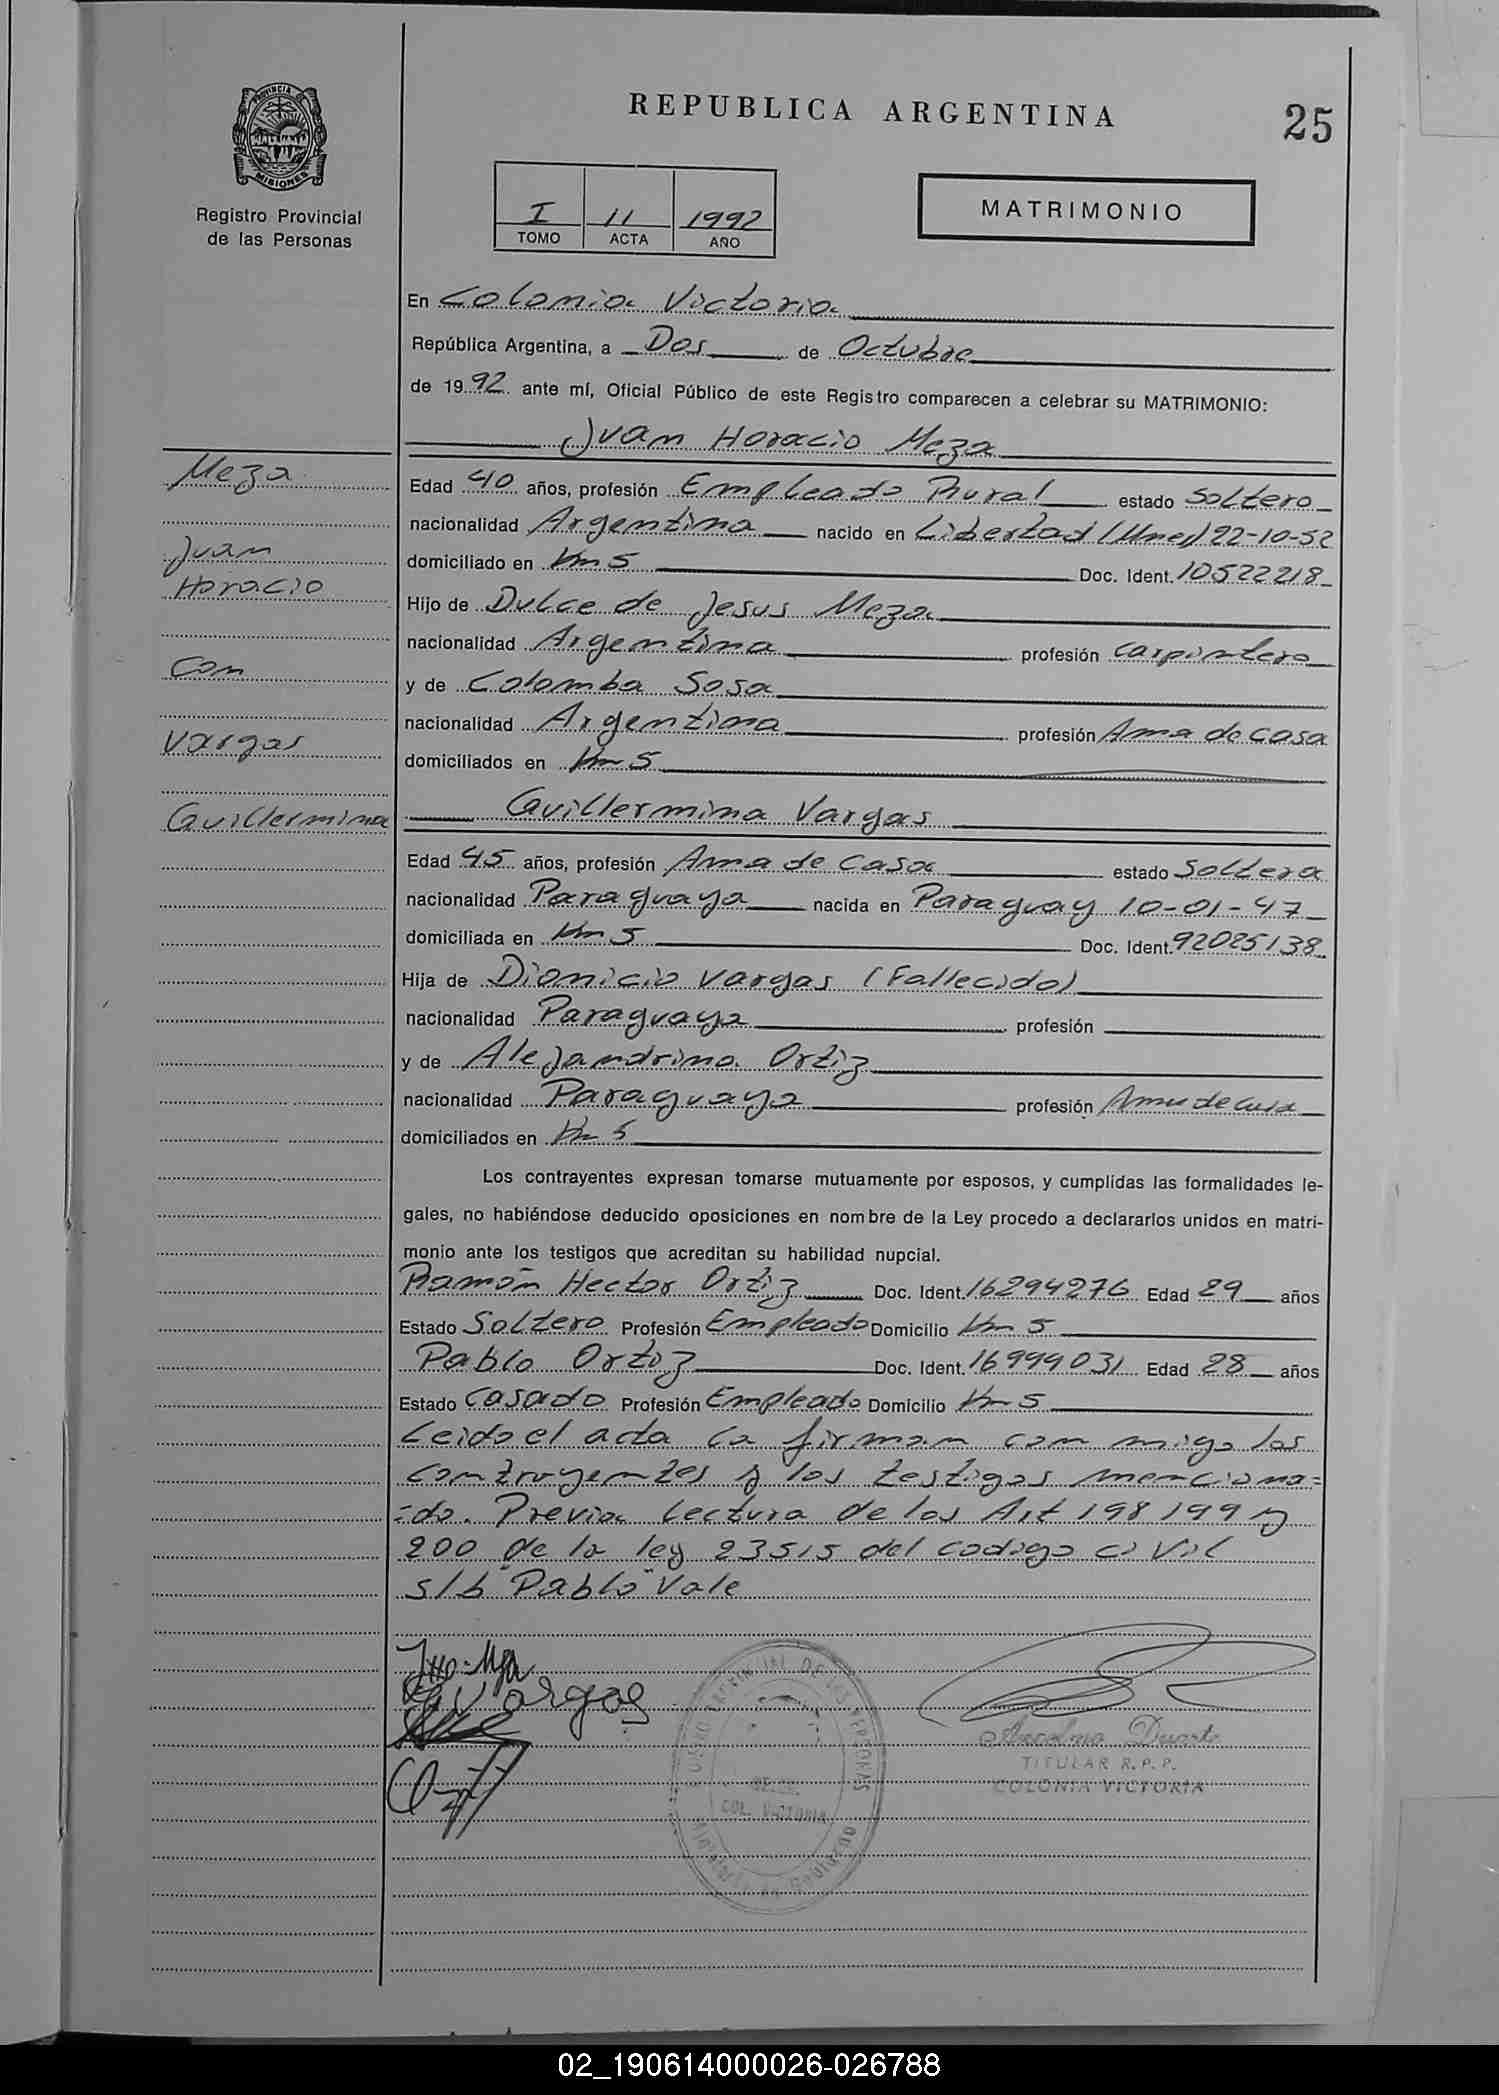 PROVINCIA
MISIONES
Registro Provincial
de las Personas
REPUBLICA ARGENTINA
25
I 11 1992
TOMO ACTA AÑO
MATRIMONIO
En Colonia Victoria
República Argentina, a Dos de Octubre
de 1992 ante mí, Oficial Público de este Registro comparecen a celebrar su MATRIMONIO:
Juan Horacio Meza
Meza
Juan
Horacio
con
Vargas
Guillermina
Edad 40 años, profesión Empleado Rural estado Soltero
nacionalidad Argentina nacido en Libertad (Mnes) 22-10-52
domiciliado en Km 5 Doc. Ident. 10522218
Hijo de Dulce de Jesus Meza
nacionalidad Argentina profesión carpintero
y de Colomba Sosa
nacionalidad Argentina profesión Ama de casa
domiciliados en Km 5
Guillermina Vargas
Edad 45 años, profesión Ama de Casa estado Soltera
nacionalidad Paraguaya nacida en Paraguay 10-01-47
domiciliada en Km 5 Doc. Ident. 92025138
Hija de Dionicio Vargas (Fallecido)
nacionalidad Paraguaya profesión
y de Alejandrina Ortiz
nacionalidad Paraguaya profesión Ama de casa
domiciliados en Km 5
Los contrayentes expresan tomarse mutuamente por esposos, y cumplidas las formalidades le-
gales, no habiéndose deducido oposiciones en nombre de la Ley procedo a declararlos unidos en matri-
monio ante los testigos que acreditan su habilidad nupcial.
Ramón Hector Ortiz Doc. Ident. 16294276 Edad 29 años
Estado Soltero Profesión Empleado Domicilio Km 5
Pablo Ortiz Doc. Ident. 16999031 Edad 28 años
Estado Casado Profesión Empleado Domicilio Km 5
Leido el acta la firman con migo los
contrayentes y los testigos menciona=
=do. Previa lectura de los Art 198 199 y
200 de la ley 23515 del codigo civil
s/b "Pablo" Vale
Vargas
REGISTRO PROVINCIAL DE LAS PERSONAS
COL. VICTORIA
Ministerio de Gobierno
Anselmo Duarte
TITULAR R.P.P.
COLONIA VICTORIA
02_190614000026-026788